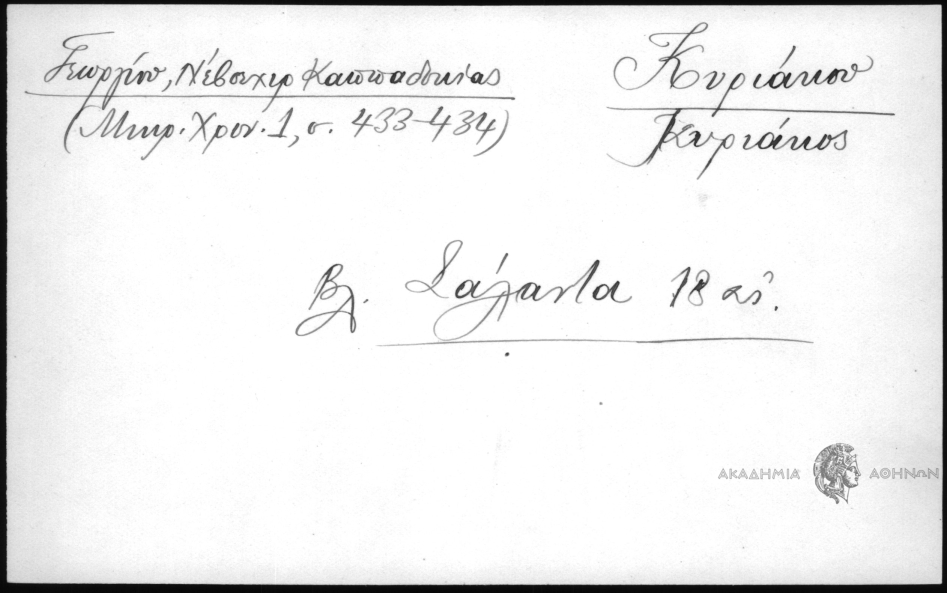 Γεωργίου, Νέβσεχιρ Καππαδοκίας
(Μικρ. Χρον. 1, σ. 433-434)
Κυριάκου
Κυριάκος
Βλ. Σάλαντα 18 αἰ.
ΑΚΑΔΗΜΙΑ ΑΘΗΝΩΝ